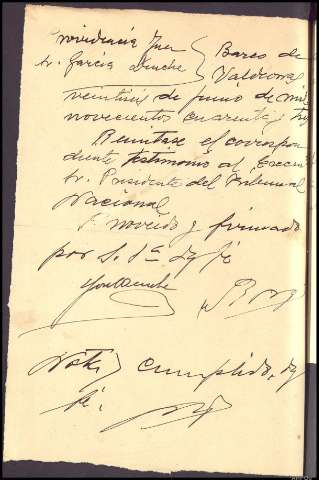 Providencia Juez } Barco de
Sr. García Vinche } Valdeorras
veintiseis de junio de mil
novecientos cuarenta y tres
Remitase el correspon
diente testimonio al Excmo
Sr. Presidente del Tribunal
Nacional
Proveido y firmado
por S. Sª doy fé
Nota} Cumplido, doy
fé.